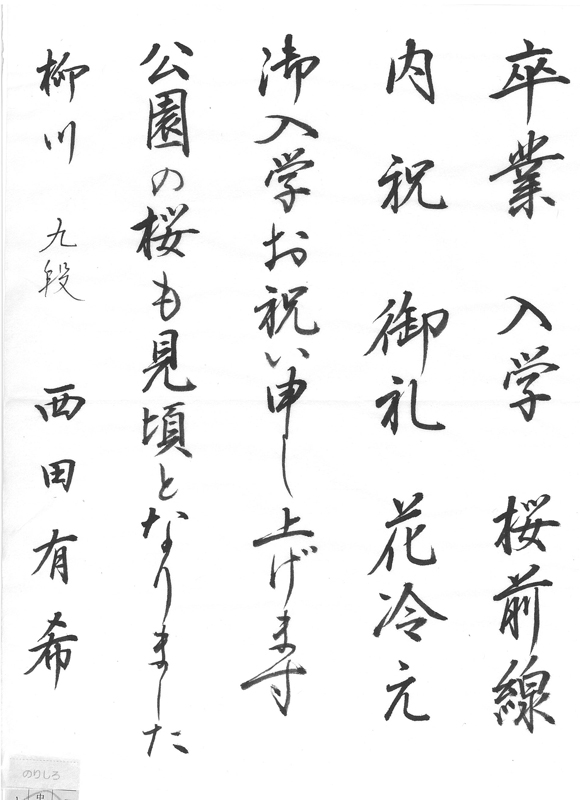 卒業 入学 桜前線
内祝 御礼 花冷え
御入学お祝い申し上げます
公園の桜も見頃となりました
柳川 九段 西田有希
のりしろ